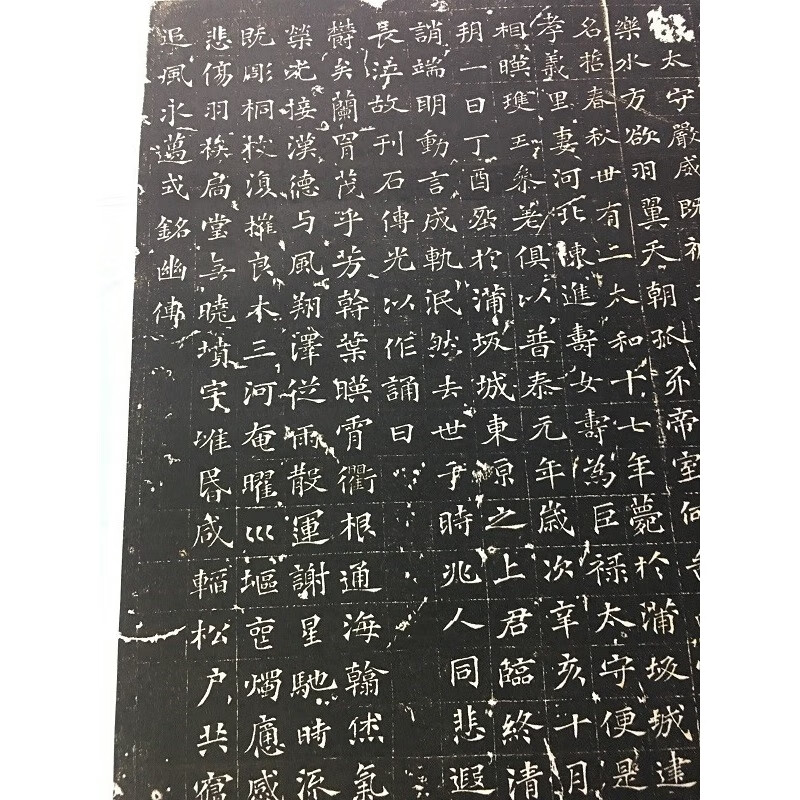 太守嚴威既被
樂水方欲羽翼天朝抓牙帝室何
名哲春秋卅有二太和十七年薨於蒲坂城建
孝義里妻河北陳進壽女壽為巨祿太守便是
相暎瓊玉參差俱以普泰元年歲次辛亥十月
朔一日丁酉塟於蒲坂城東原之上君臨終清
誚端明動言成軌泯然去世于時兆人同悲遐
長泣故刊石傳光以作誦曰
欝矣蘭胄茂乎芳幹葉暎霄衢根通海翰倐氣
榮光接漢德与風翔澤從雨散運謝星馳時流
既彫桐枝復摧良木三河奄曜巛塸喪燭痛感
悲傷羽族扃堂無曉墳宇唯昏咸韜松户共寢
追風永邁式銘幽傳